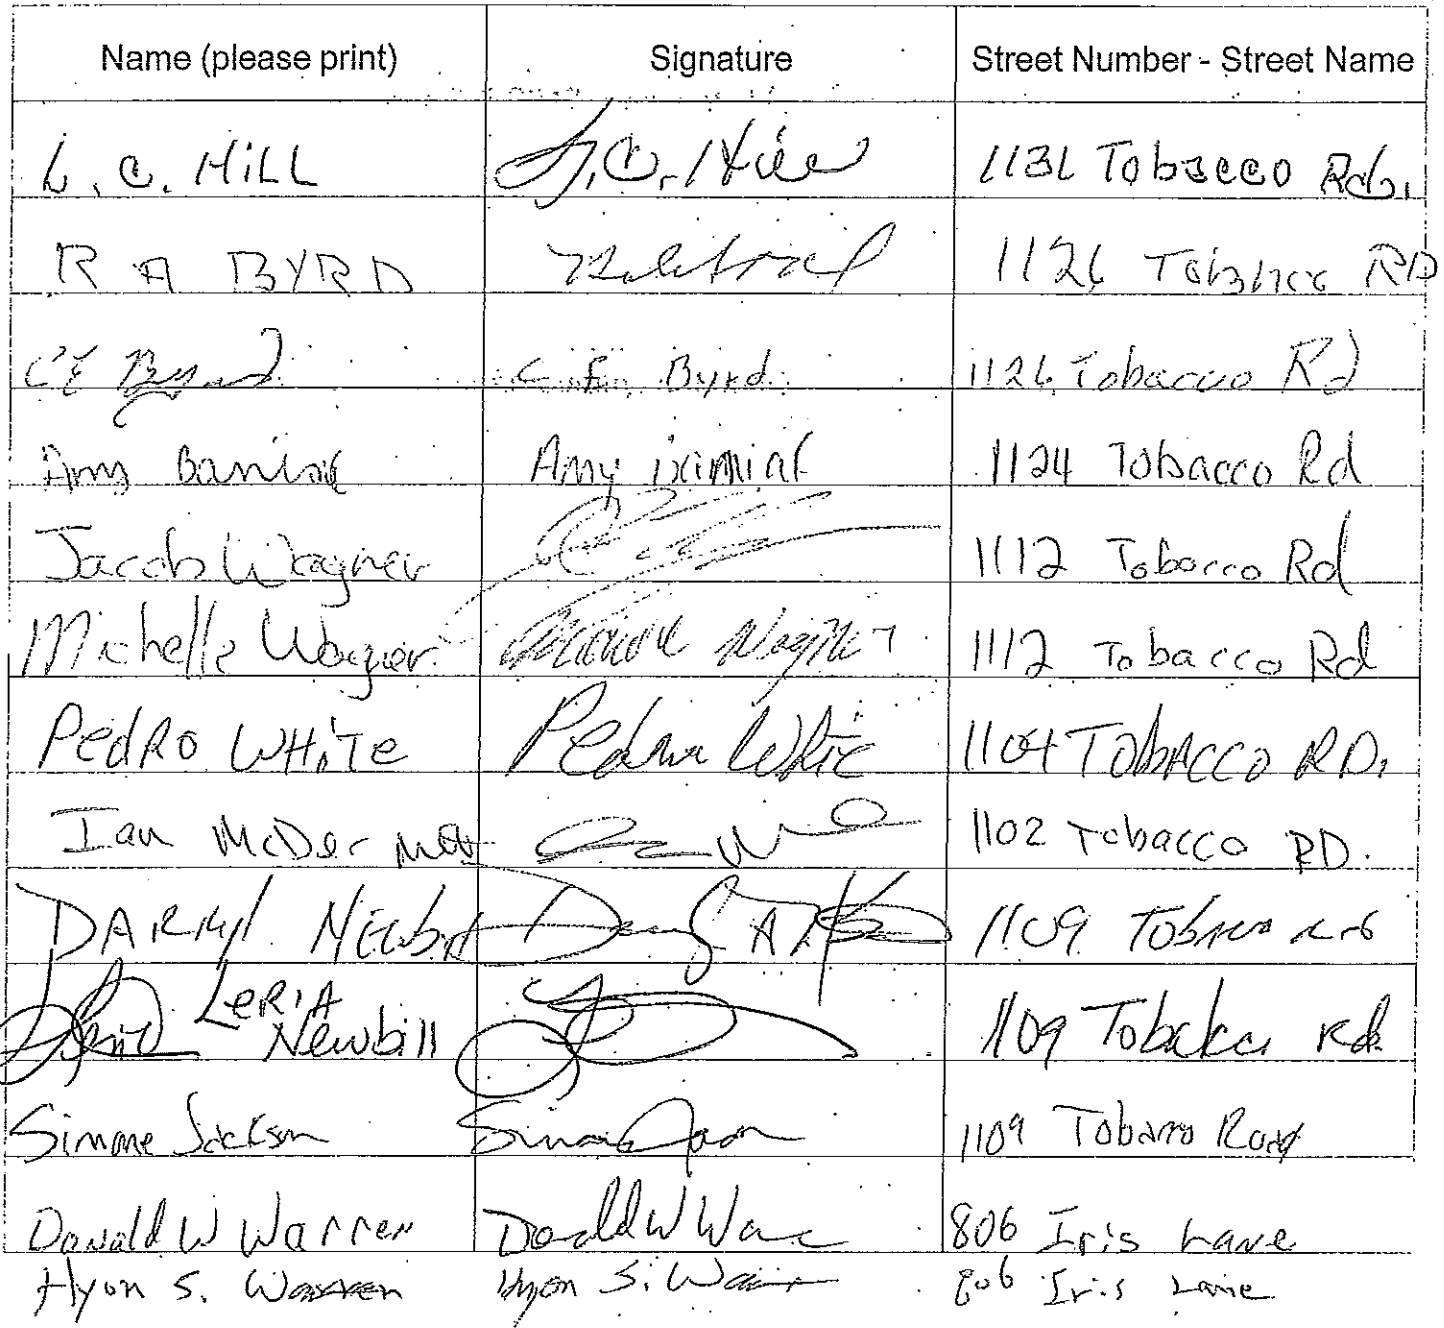 Name (please print) Signature Street Number - Street Name
L. C. HILL L. C. Hill 1131 Tobacco Rd.
R A BYRD 1126 Tobacco RD
C E Byrd C. E. Byrd 1126 Tobacco Rd
Amy Amy 1124 Tobacco Rd
Jacob Wagner 1112 Tobacco Rd
Michelle Wagner Michelle Wagner 1112 Tobacco Rd
PedRO WHiTe Pedro White 1104 TObACCO RD.
Ian McDermott 1102 Tobacco RD.
DARRyl 1109 Tobacco
LeRIA
Newbill 1109 Rd.
Simone Jackson Simone 1109 Tobacco Road
Donald W Warren Donald W 806 Iris Lane
Hyon S. Warren Hyon S. 806 Iris Lane